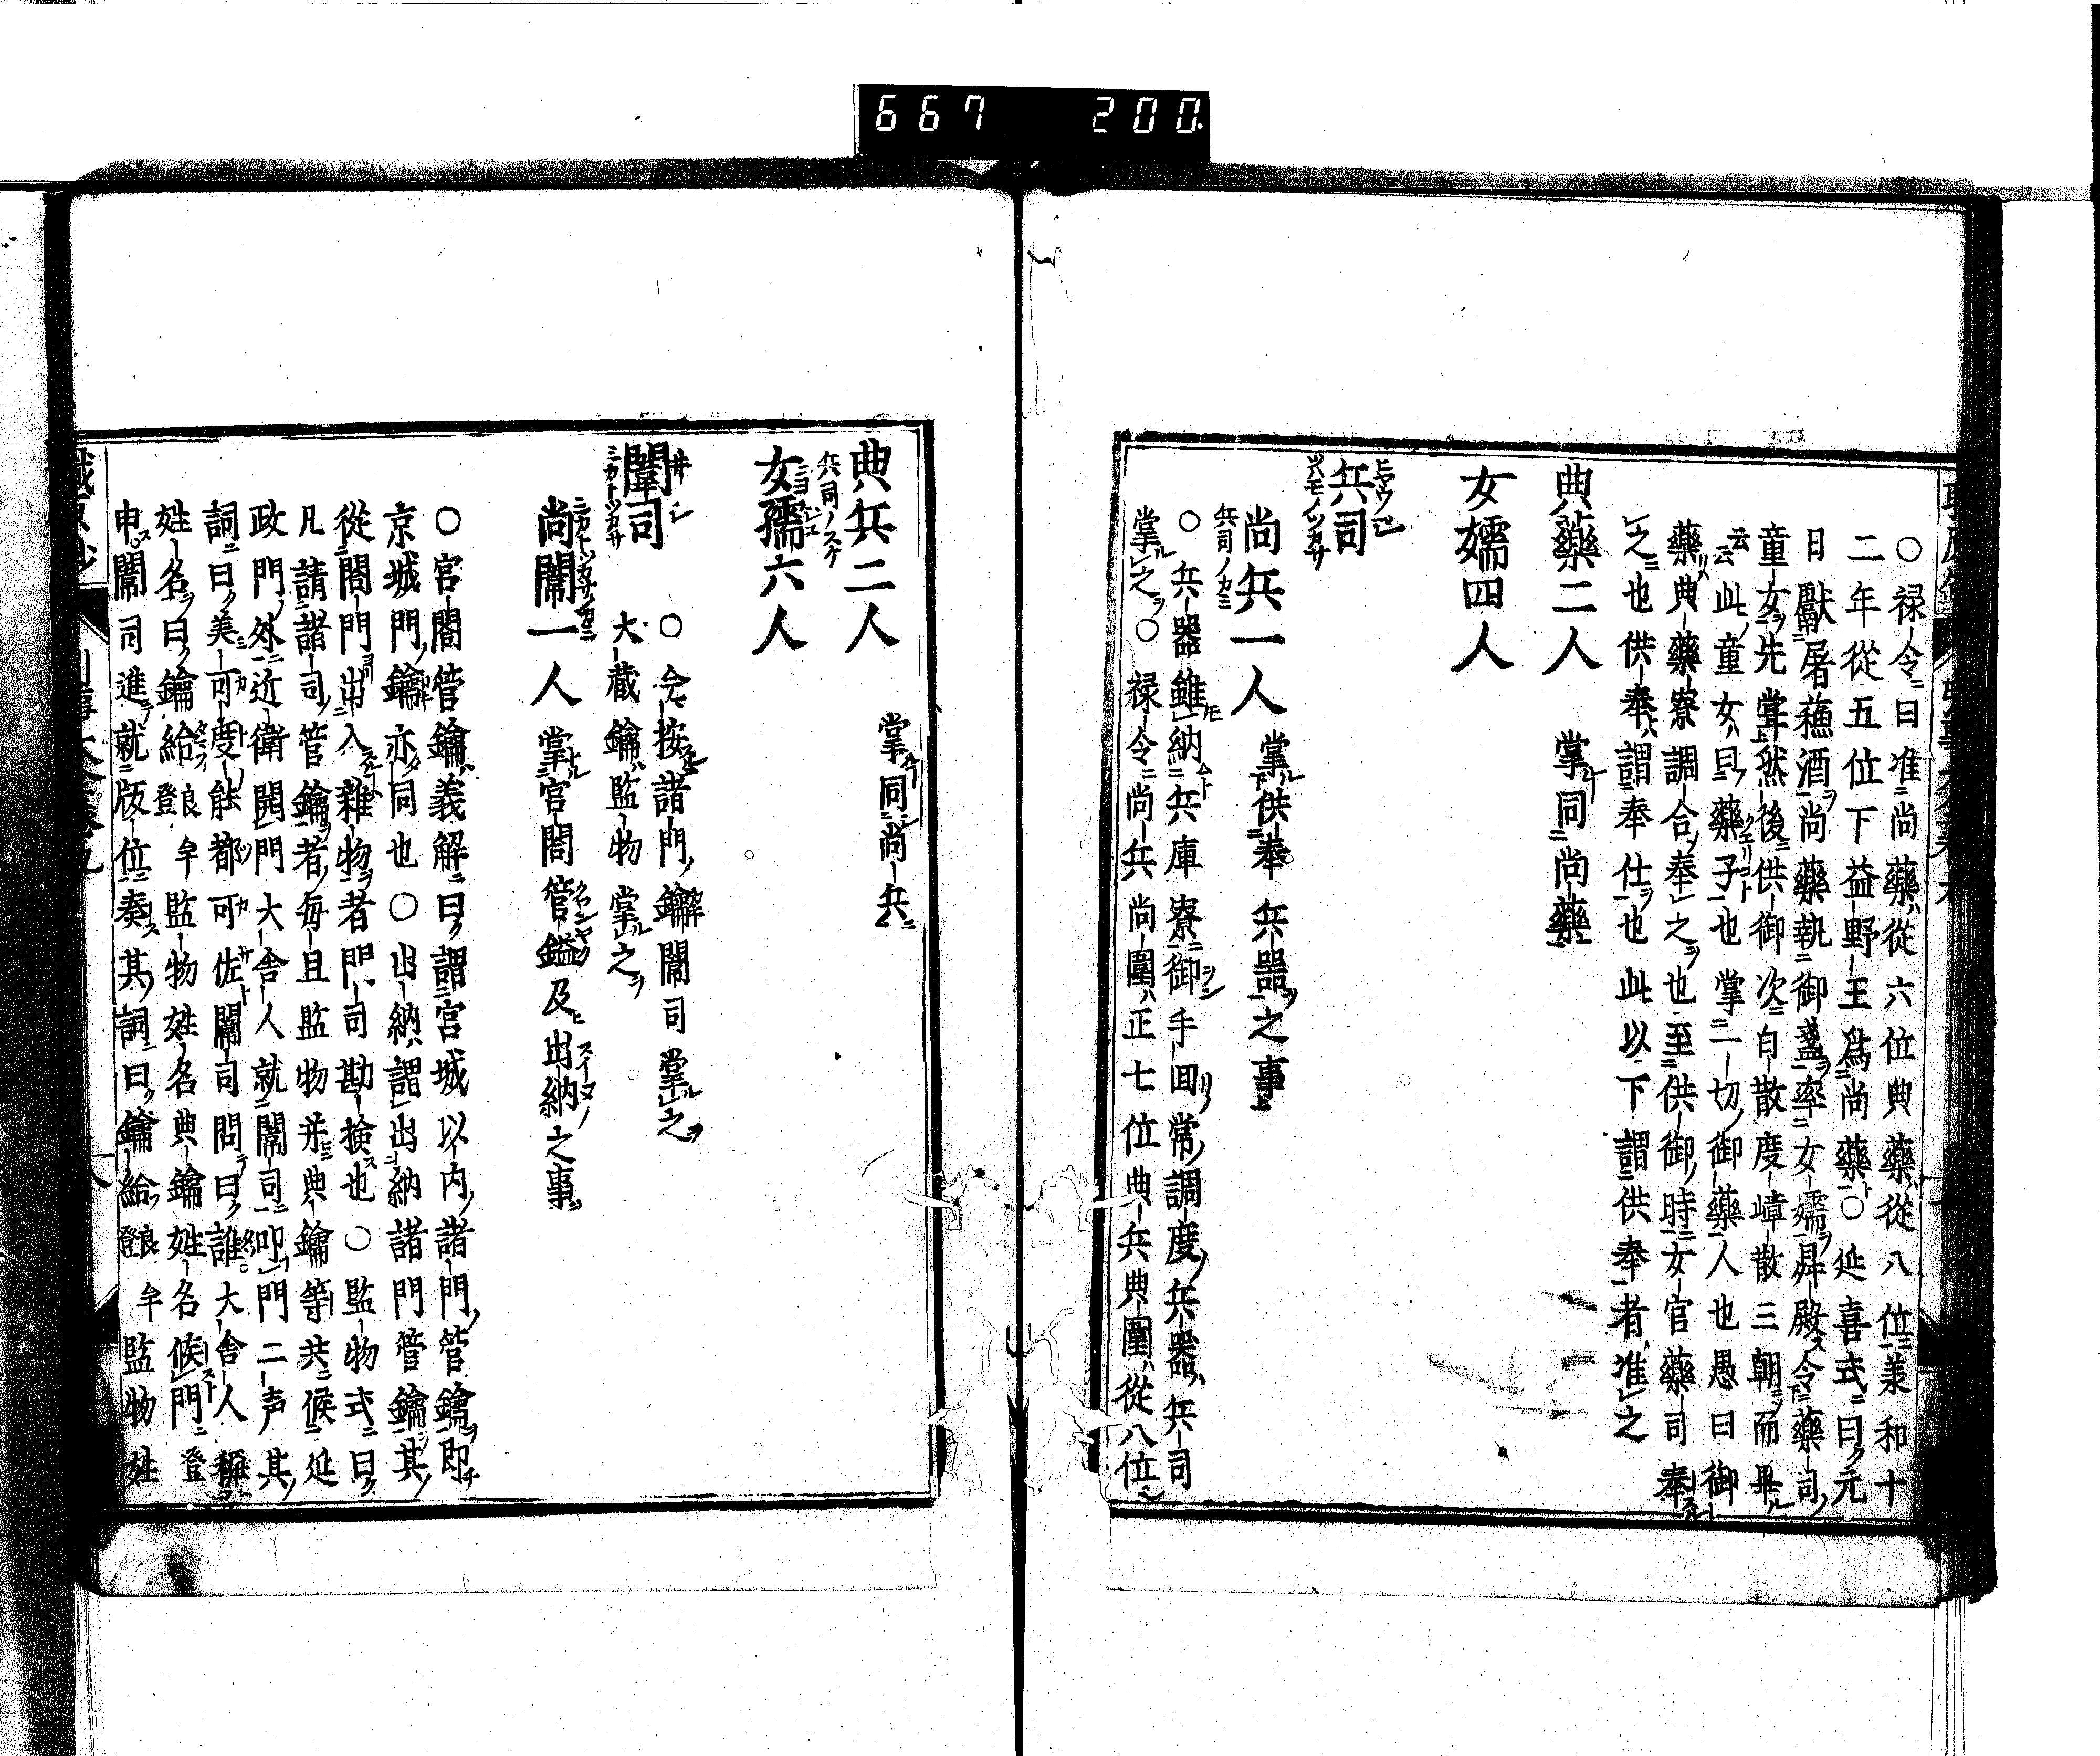 667 200
○禄令曰准尚藥從六位典藥從八位兼和十
二年從五位下益野王爲尚藥○延喜式曰元
日獻屠蘓酒尚藥執御盞率女孺昇殿令藥司
童女先甞然後供御次白散度嶂散三朝而畢
云云此童女曰藥子也掌一切御藥人也愚曰御
藥典藥寮調合奉之也至供御時女官藥司奉
之也供奉謂奉仕也此以下謂供奉者准之
典藥二人 掌同尚藥
女嬬四人
兵司
尚兵一人 掌供奉兵器之事
○兵器雖納兵庫寮御手回常調度兵器兵司
掌之○禄令尚兵尚闈正七位典兵典闈從八位
典兵二人 掌同尚兵
女孺六人
闈司
○今按諸門鑰闈司掌之
大蔵鑰監物掌之
尚闈一人 掌宮閤管鎰及出納之事
○宮閤管鑰義解曰謂宮城以内諸門管鑰即
京城門鑰亦同也○出納謂出納諸門管鑰其
從閤門出入雜物者門司勘検也○監物式曰
凡請諸司管鑰者毎旦監物并典鑰等共候延
政門外近衛開門大舎人就闈司叩門二声其
詞曰美可度能都可佐闈司問曰誰大舎人稱
姓名曰鑰給登良牟監物姓名典鑰姓名候門登
申闈司進就版位奏其詞曰鑰給登良牟監物姓